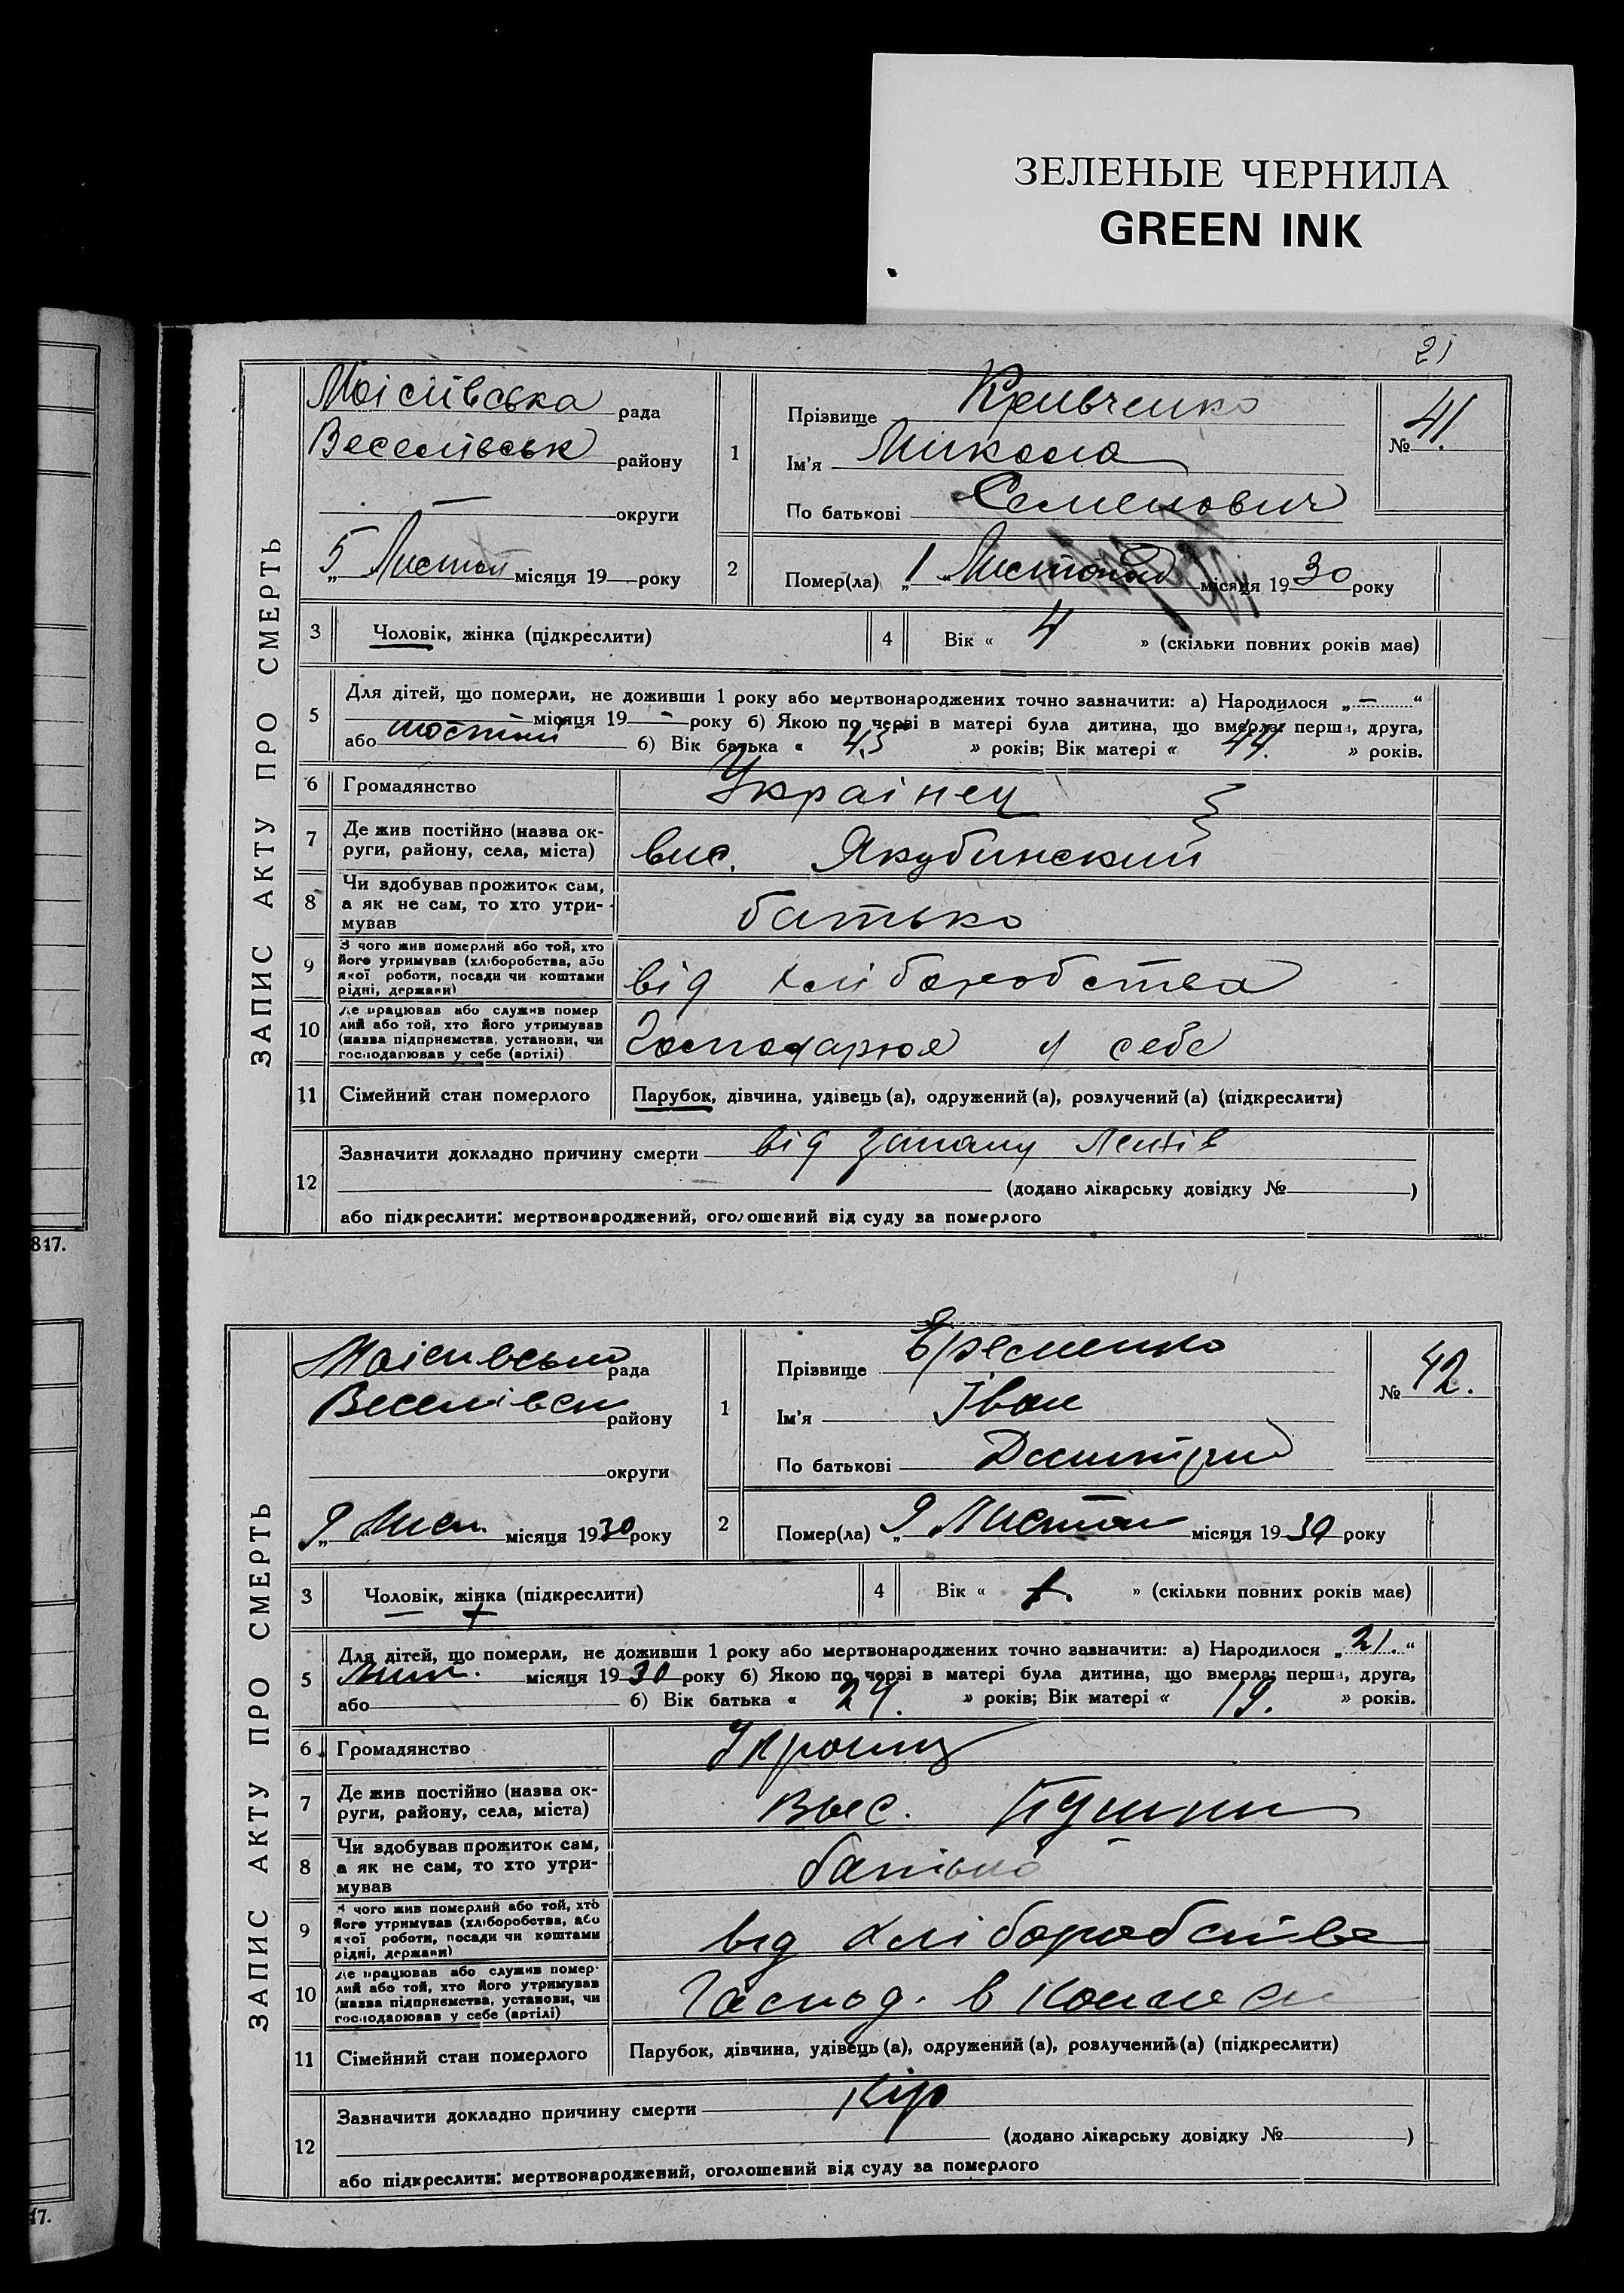 ЗЕЛЕНЫЕ ЧЕРНИЛА
GREEN INK
21
ЗАПИС АКТУ ПРО СМЕРТЬ
Моісіївська рада
Веселівськ району
— округи
„5 Листоп місяця 19— року
1
Прізвище Кривченко
Ім'я Микола
По батькові Семенович
№ 41.
2
Помер(ла) „1 Листопад місяця 1930 року
3 Чоловік, жінка (підкреслити)
4 Вік « 4 » (скільки повних років має)
5 Для дітей, що померли, не доживши 1 року або мертвонароджених точно зазначити: а) Народилося „—“
— місяця 19 — року б) Якою по черзі в матері була дитина, що вмерла: перша, друга,
або шостий б) Вік батька « 45 » років; Вік матері « 44. » років.
6 Громадянство Українец
7 Де жив постійно (назва ок-
руги, району, села, міста) вис. Якубинский
8 Чи здобував прожиток сам,
а як не сам, то хто утри-
мував батько
9 З чого жив померлий або той, хто
його утримував (хліборобства, або
якої роботи, посади чи коштами
рідні, держави) від хліборобства
10 Де працював або служив помер
лий або той, хто його утримував
(назва підприємства, установи, чи
господарював у себе (артілі) Господарюя у себе
11 Сімейний стан померлого Парубок, дівчина, удівець (а), одружений (а), розлучений (а) (підкреслити)
12 Зазначити докладно причину смерти від запалу легків
(додано лікарську довідку № )
або підкреслити: мертвонароджений, оголошений від суду за померлого
817.
ЗАПИС АКТУ ПРО СМЕРТЬ
Моісивсько рада
Веселівськ району
округи
„9 Лист. місяця 1930 року
1
Прізвище Єременко
Ім'я Іван
По батькові Дмитрив
№ 42.
2
Помер(ла) „9 Листоп місяця 1930 року
3 Чоловік, жінка (підкреслити)
4 Вік « » (скільки повних років має)
5 Для дітей, що померли, не доживши 1 року або мертвонароджених точно зазначити: а) Народилося „21.“
місяця 1930 року б) Якою по черзі в матері була дитина, що вмерла: перша, друга,
або б) Вік батька « 24. » років; Вік матері « 19. » років.
6 Громадянство Украинц
7 Де жив постійно (назва ок-
руги, району, села, міста) Выс.
8 Чи здобував прожиток сам,
а як не сам, то хто утри-
мував батько
9 З чого жив померлий або той, хто
його утримував (хліборобства, або
якої роботи, посади чи коштами
рідні, держави) від хліборобства
10 Де працював або служив помер-
лий або той, хто його утримував
(назва підприємства, установи, чи
господарював у себе (артілі) Господ. в
11 Сімейний стан померлого Парубок, дівчина, удівець (а), одружений (а), розлучений (а) (підкреслити)
12 Зазначити докладно причину смерти Кір
(додано лікарську довідку № )
або підкреслити: мертвонароджений, оголошений від суду за померлого
17.